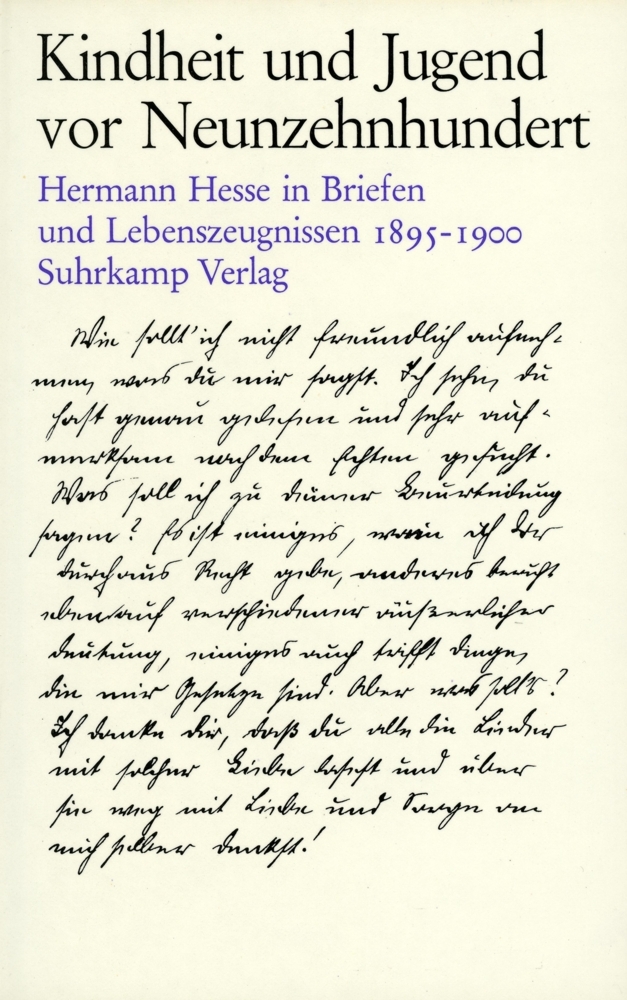 Kindheit und Jugend
vor Neunzehnhundert
Hermann Hesse in Briefen
und Lebenszeugnissen 1895-1900
Suhrkamp Verlag
Wie sollt' ich nicht freundlich aufneh-
men, was du mir sagst. Ich sehe, du
hast genau gelesen und sehr auf-
merksam nach dem Echten gesucht.
Was soll ich zu deiner Beurteilung
sagen? Es ist einiges, worin ich dir
durchaus Recht gebe, anderes beruht
eben auf verschiedener äußerlicher
Deutung, einiges auch trifft Dinge,
die mir Gesetze sind. Aber was soll's?
Ich danke dir, daß du alle die Lieder
mit solcher Liebe lasest und über
sie weg mit Liebe und Sorge an
mich selber denkst!